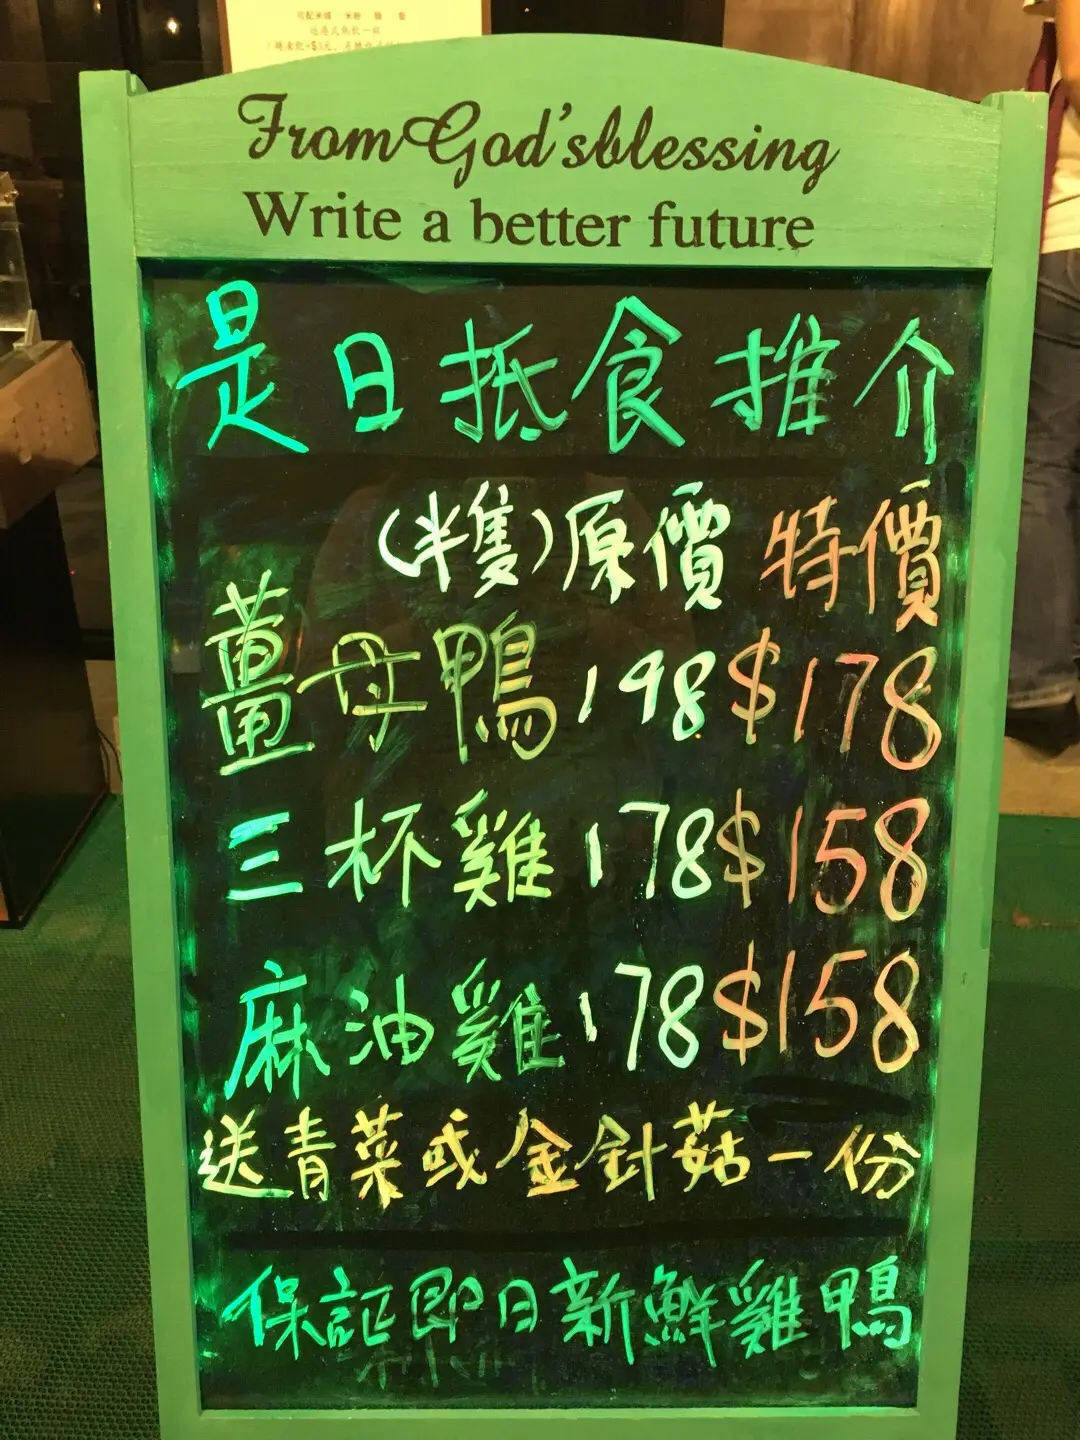 可配米線 米粉 麵 飯
送港式熱飲一杯
From God'sblessing
Write a better future
是日抵食推介
(半隻)原價 特價
薑母鴨 198 $178
三杯雞 178 $158
麻油雞 178 $158
送青菜或金針菇一份
保証即日新鮮雞鴨